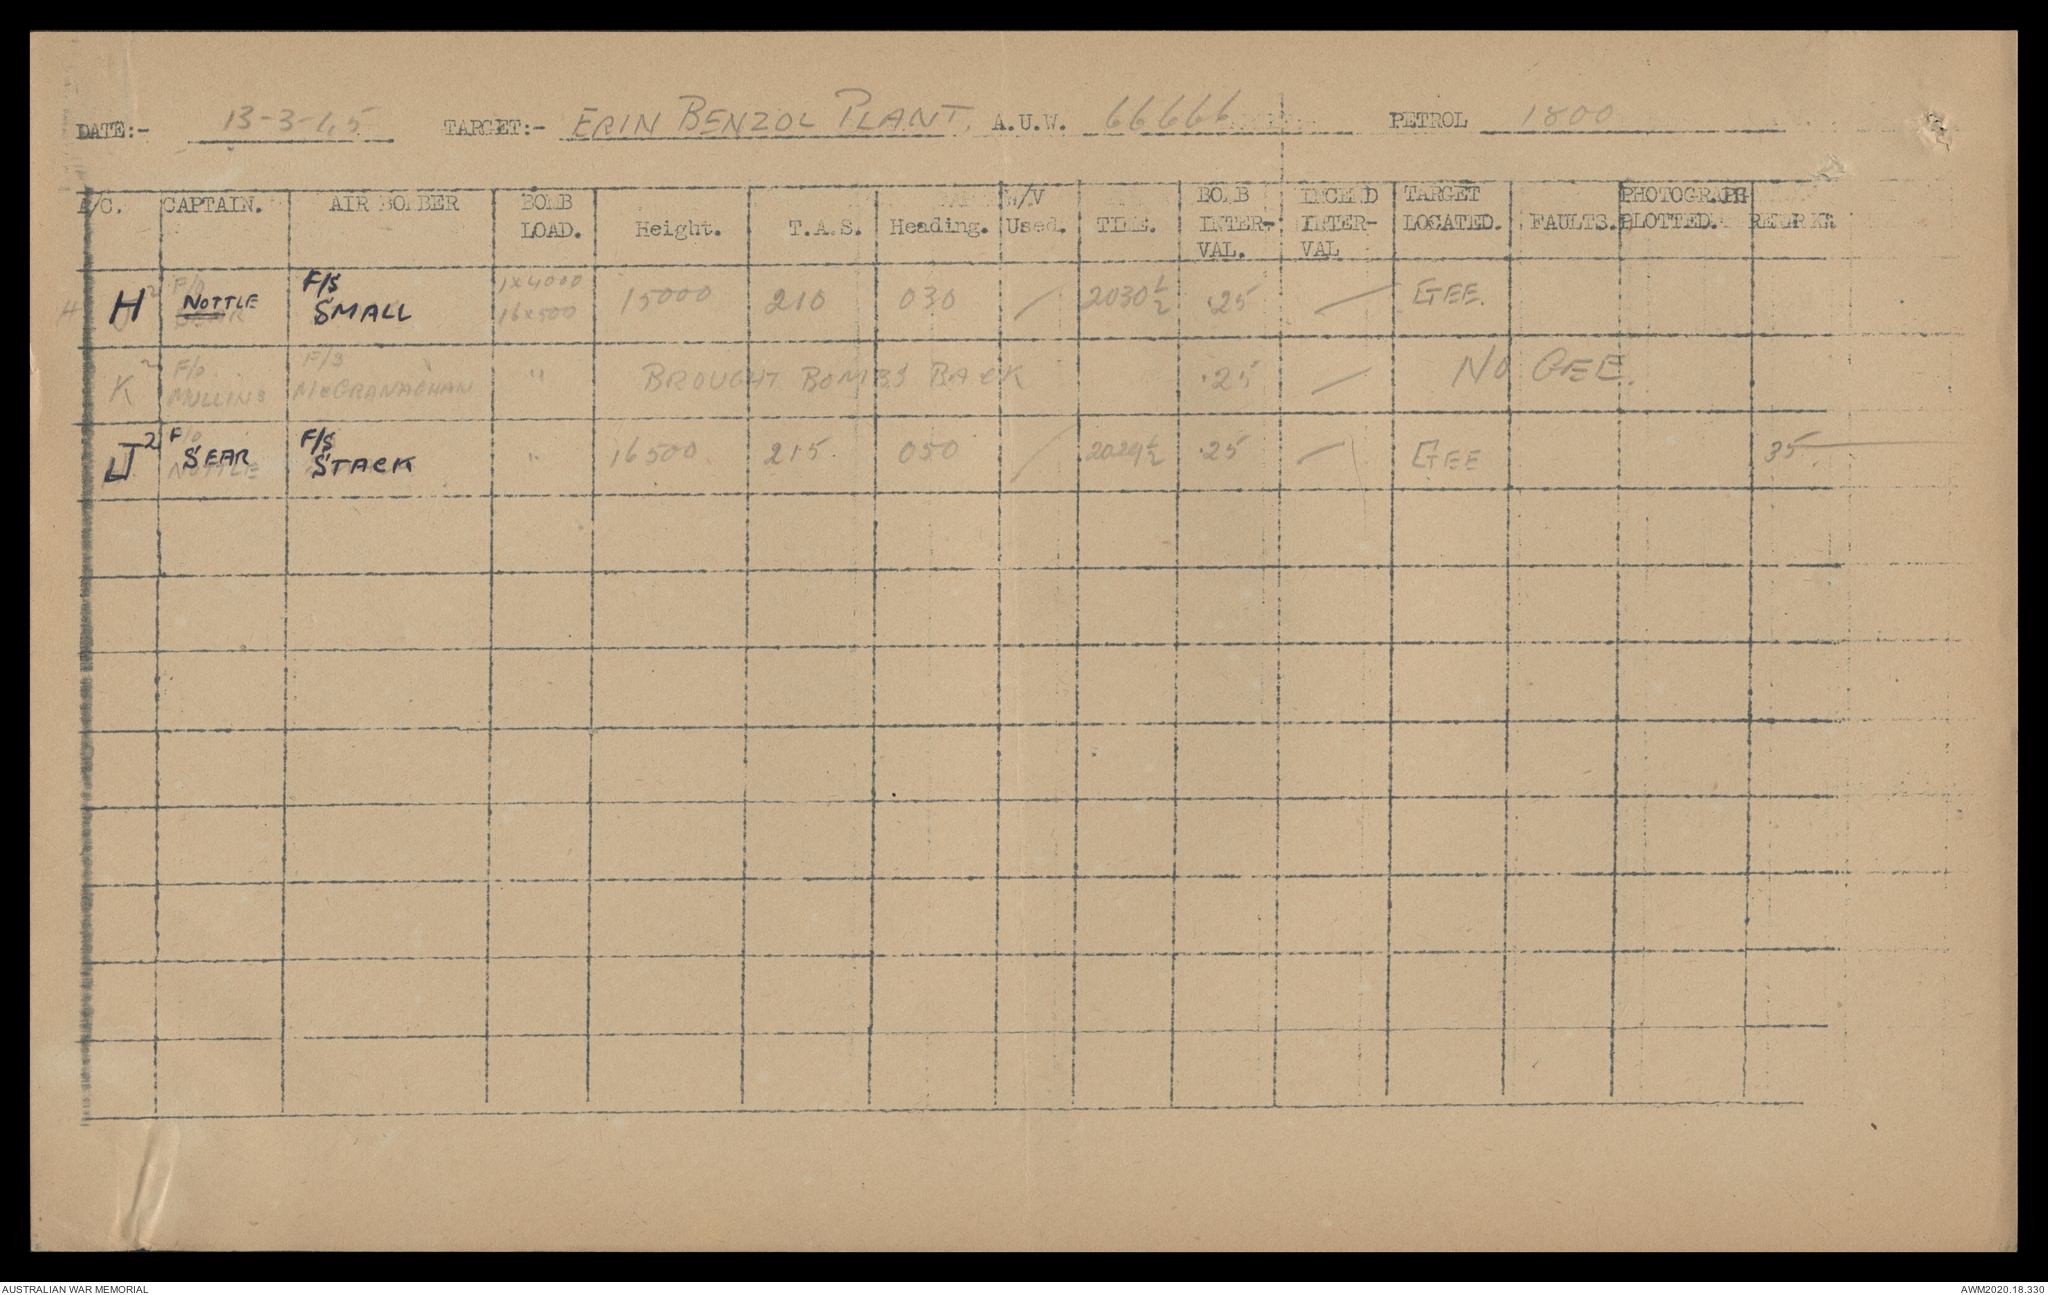 DATE:- 13-3-45 TARGET:- ERIN BENZOL PLANT. A.U.W. 66666 PETROL 1800
A/C. CAPTAIN. AIR BOMBER BOMB LOAD. Height. T.A.S. Heading. W/V Used. TIME. BOMB INTER-VAL. INCEND INTER-VAL TARGET LOCATED. FAULTS. PHOTOGRAPH PLOTTED. REMARKS
H2 F/O NOTTLE F/S SMALL 1x4000 16x500 15000 210 030 / 2030½ .25 / GEE.
K2 F/O MULLINS F/S McGRANAGHAN " BROUGHT BOMBS BACK .25 / NO GEE.
J2 F/O SEAR F/S STACK " 16500 215. 050 / 2029½ .25 / GEE 35
AUSTRALIAN WAR MEMORIAL
AWM2020.18.330